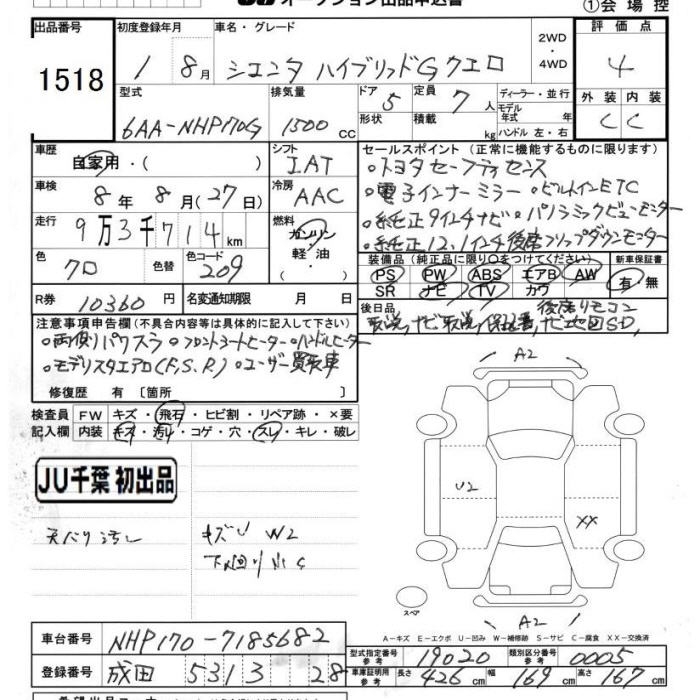 オークション出品申込書
①会場控
出品番号 初度登録年月 車名・グレード 2WD・4WD 評価点
1518 1 8月 シエンタ ハイブリッドG クエロ 4
型式 排気量 ドア 5 定員 7人 ディーラー・並行 外装 内装
6AA-NHP170G 1500cc 形状 積載 kg モデル年式 年式 ハンドル 左・右 C C
車歴 自家用・( ) シフト IAT
車検 8年8月(27日) 冷房 AAC
走行 9万3千714km 燃料 ガソリン 軽油 ( )
色 クロ 色替 色コード 209
R券 10360円 名変通知期限 月 日
セールスポイント(正常に機能するものに限ります)
・トヨタセーフティセンス
・電子インナーミラー ・ビルトインETC
・純正9インチナビ ・パノラミックビューモニター
・純正12.1インチ後席フリップダウンモニター
装備品(純正品に限り○をつけてください) 新車保証書
PS PW ABS エアB AW 有・無
SR ナビ TV カワ
後日品 後席リモコン
取説,ナビ取説,保証書,ナビ地図SD,
注意事項申告欄(不具合内容等は具体的に記入して下さい)
・両側パワスラ ・フロントシートヒーター ・ハンドルヒーター
・モデリスタエアロ(F,S,R) ・ユーザー買取車
修復歴 有〔箇所 〕
検査員記入欄 FW キズ・飛石・ヒビ割・リペア跡・×要
内装 キズ・汚れ・コゲ・穴・スレ・キレ・破レ
JU千葉 初出品
天バリ汚レ
キズU W2
下回り小C
A2
U2
XX
A2
スペア
A-キズ E-エクボ U-凹み W-補修跡 S-サビ C-腐食 XX-交換済
車台番号 NHP170-7185682
登録番号 成田 531 3 28-
型式指定番号 参考 19020 類別区分番号 参考 0005
車庫証明用 参考 長さ 426cm 幅 169cm 高さ 167cm